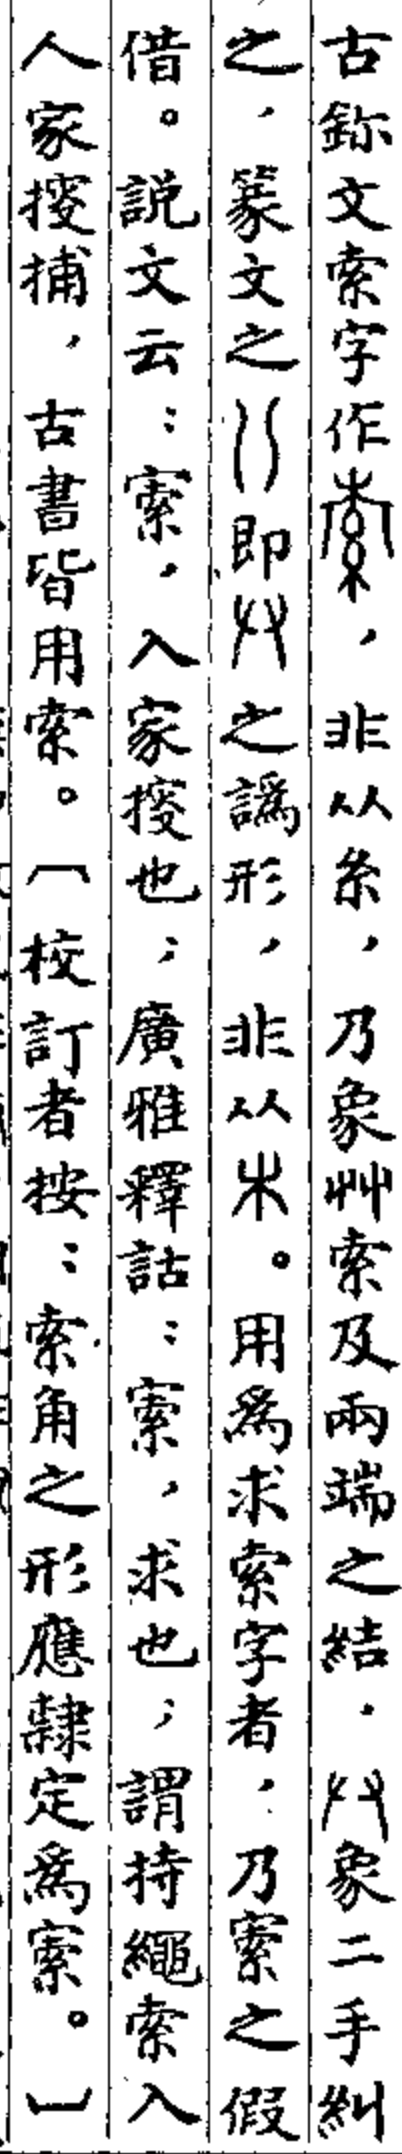 古鉨文索字作，非从糸，乃象艸索及兩端之結，象二手糾
之，篆文之即之譌形，非从木。用爲求索字者，乃㩟之假
借。説文云：㩟，入家搜也；廣雅釋詁：㩟，求也；謂持繩索入
人家搜捕，古書皆用索。〔校訂者按：索角之形應隸定爲㩟。〕